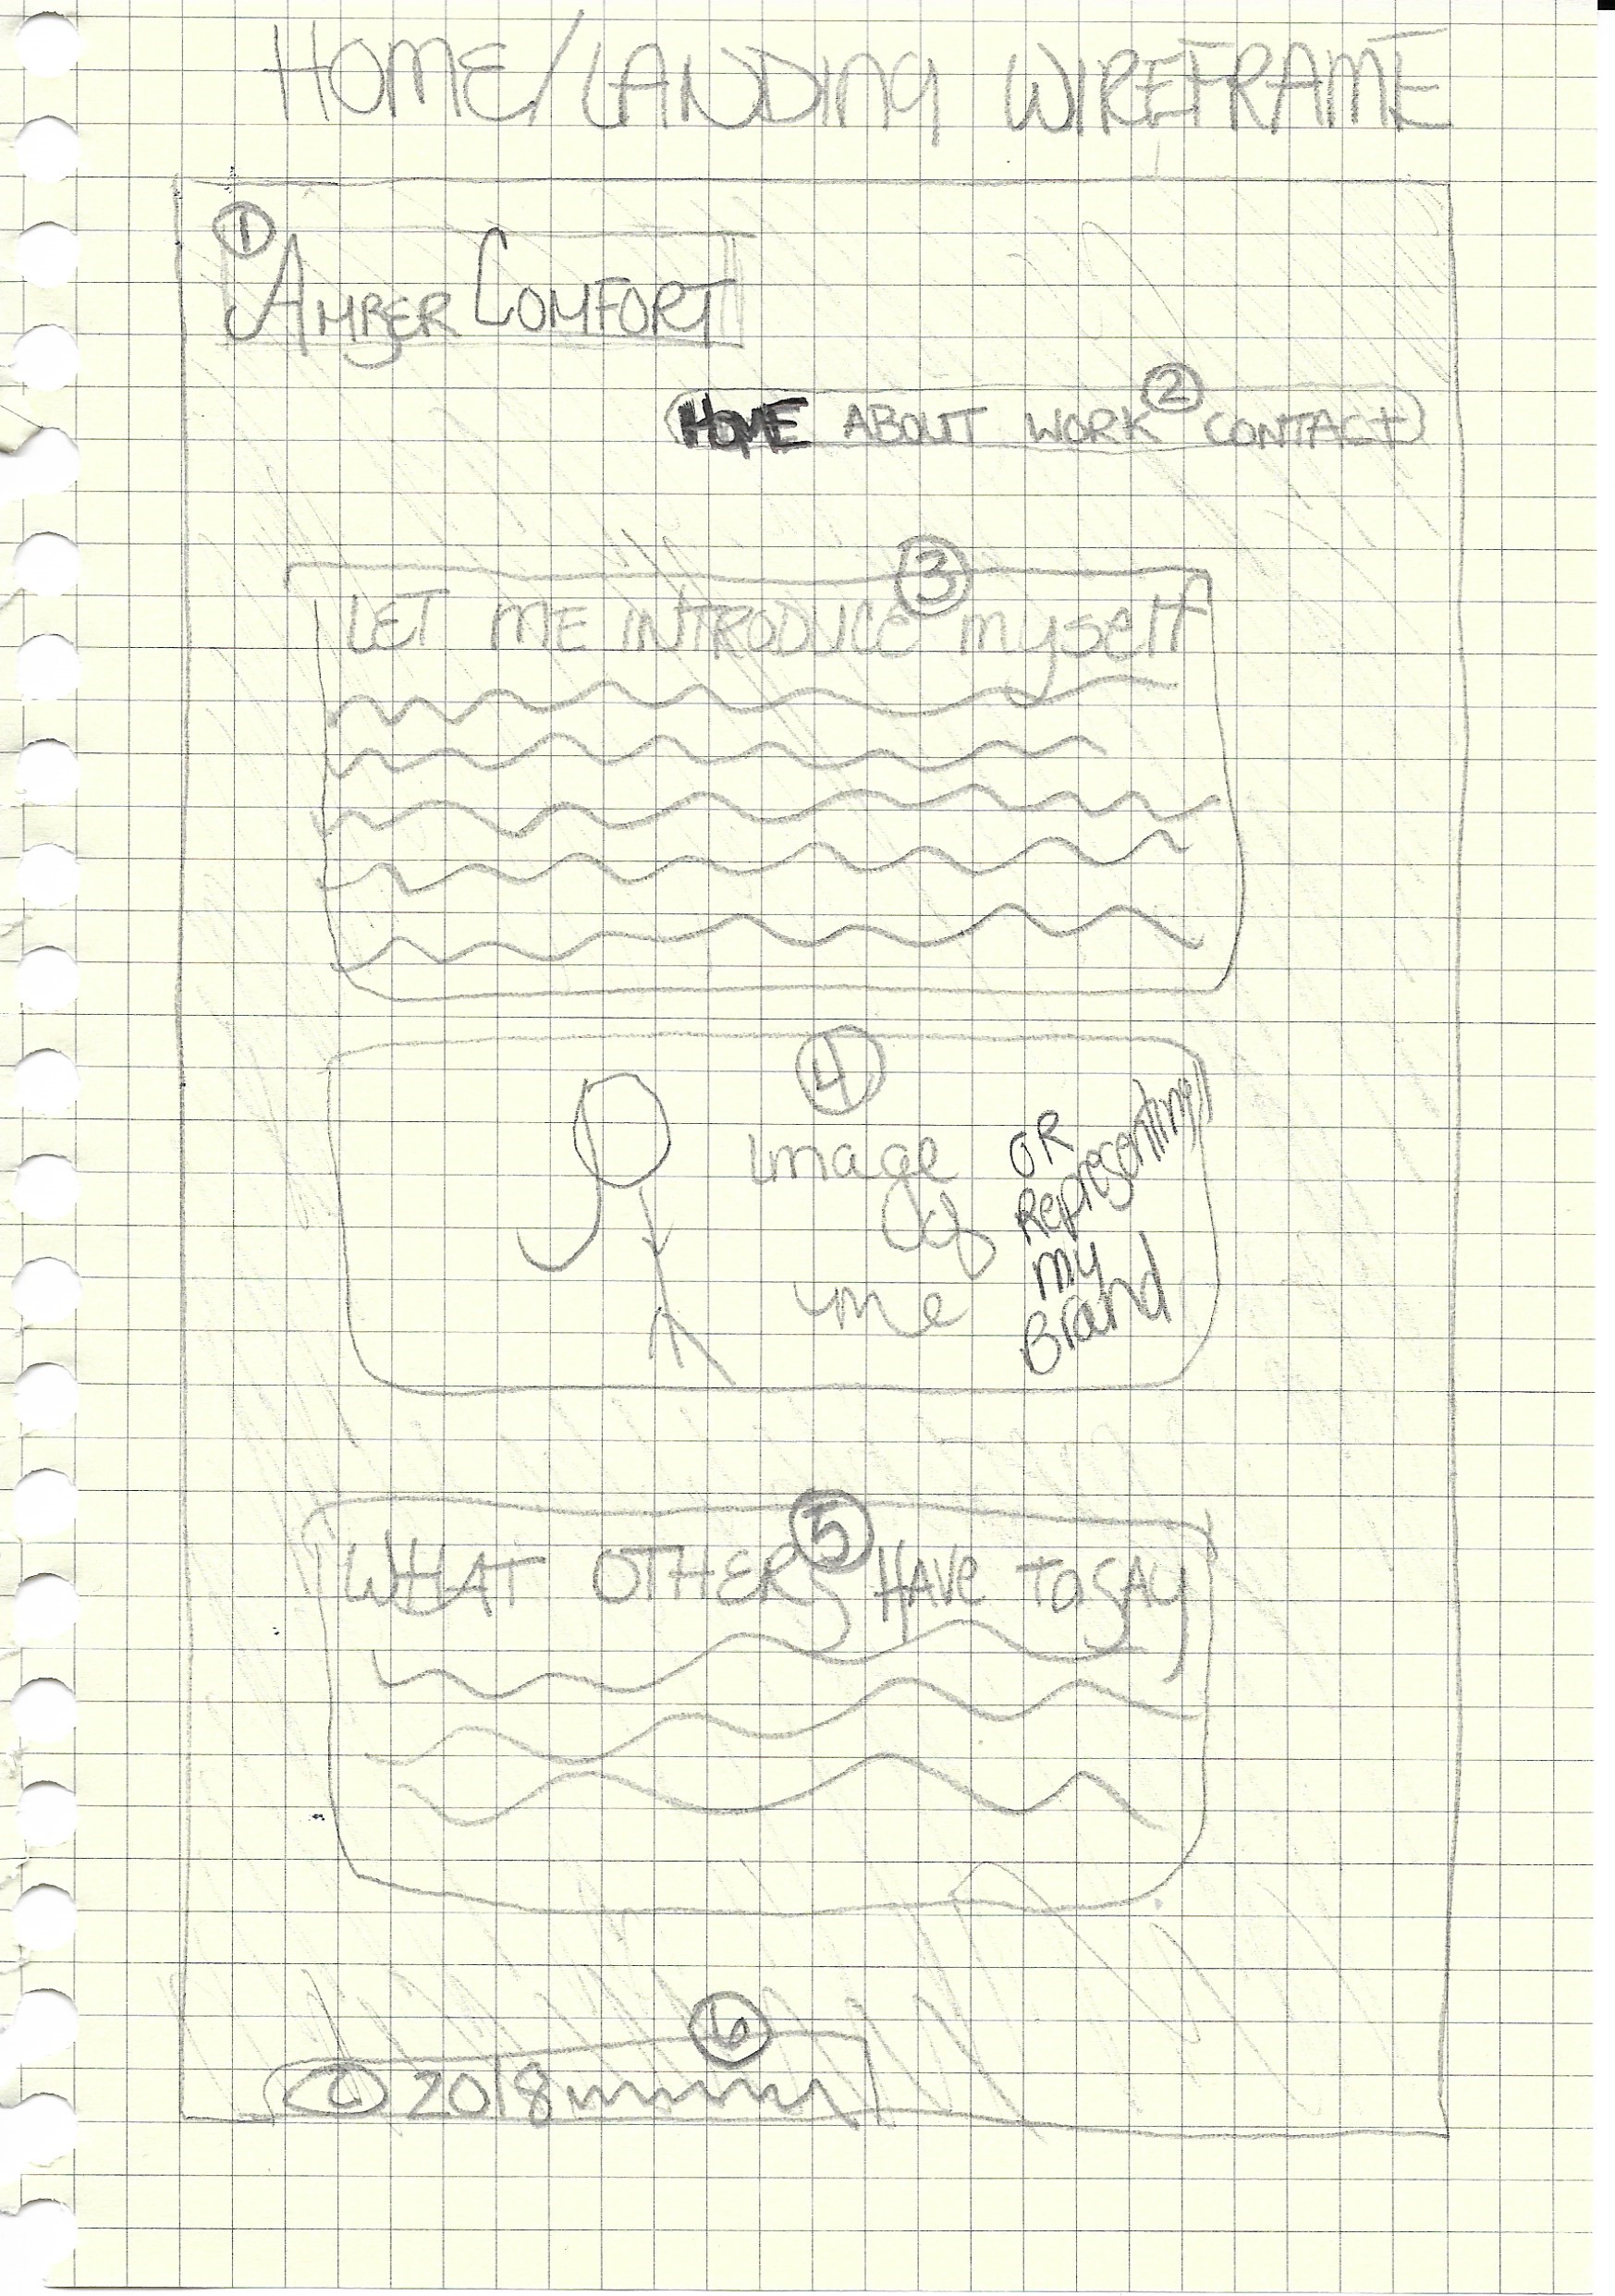 HOME/LANDING WIREFRAME
①
AMBER COMFORT
②
HOME ABOUT WORK CONTACT
③
LET ME INTRODUCE MYSELF
④
image
of
me
OR
Representing
my
Brand
⑤
WHAT OTHERS HAVE TO SAY
⑥
© 2018